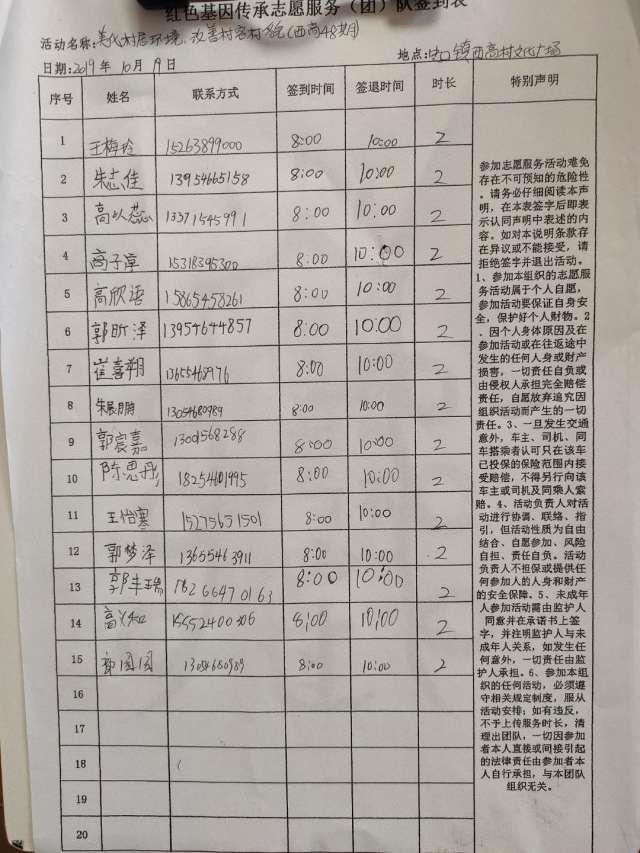 红色基因传承志愿服务（团）队签到表
活动名称：美化村居环境、改善村容村貌（西高48期）
日期：2019年10月19日 地点：埝口镇西高村文化广场
序号 姓名 联系方式 签到时间 签退时间 时长 特别声明
1 王梅玲 15263899000 8:00 10:00 2
2 朱志佳 13954665158 8:00 10:00 2
3 高以蕊 13371545991 8:00 10:00 2
4 高子草 15318395300 8:00 10:00 2
5 高欣语 15865458261 8:00 10:00 2
6 郭昕泽 13954644857 8:00 10:00 2
7 崔喜翔 13655468976 8:00 10:00 2
8 朱展鹏 13054680989 8:00 10:00 2
9 郭宸嘉 13001568288 8:00 10:00 2
10 陈思彤 18254401995 8:00 10:00 2
11 王怡骞 15275651501 8:00 10:00 2
12 郭梦泽 13655463911 8:00 10:00 2
13 郭 瑞 8:00 10:00 2
14 高 8:00 10:00 2
15 郭圆圆 13054680989 8:00 10:00 2
16
17
18
19
20
参加志愿服务活动难免
存在不可预知的危险性
。请务必仔细阅读本声
明，在本表签字后即表
示认同声明中表述的内
容。如对本说明条款存
在异议或不能接受，请
拒绝签字并退出活动。
1、参加本组织的志愿服
务活动属于个人自愿，
参加活动要保证自身安
全，保护好个人财物。2
、因个人身体原因及在
参加活动或在往返途中
发生的任何人身或财产
损害，一切责任自负或
由侵权人承担完全赔偿
责任，自愿放弃追究因
组织活动而产生的一切
责任。3、一旦发生交通
意外，车主、司机、同
车搭乘者认可只在该车
已投保的保险范围内接
受赔偿，不得另行向该
车主或司机及同乘人索
赔。4、活动负责人对活
动进行协调、联络、指
引，但活动性质为自由
结合、自愿参加、风险
自担、责任自负。活动
负责人不担保或提供任
何参加人的人身和财产
的安全保障。5、未成年
人参加活动需由监护人
同意并在承诺书上签
字，并注明监护人与未
成年人关系，如发生任
何意外，一切责任由监
护人承担。6、参加本组
织的任何活动，必须遵
守相关规定制度，服从
活动安排；如有违反，
不予上传服务时长，清
理出团队，一切因参加
者本人直接或间接引起
的法律责任由参加者本
人自行承担，与本团队
组织无关。